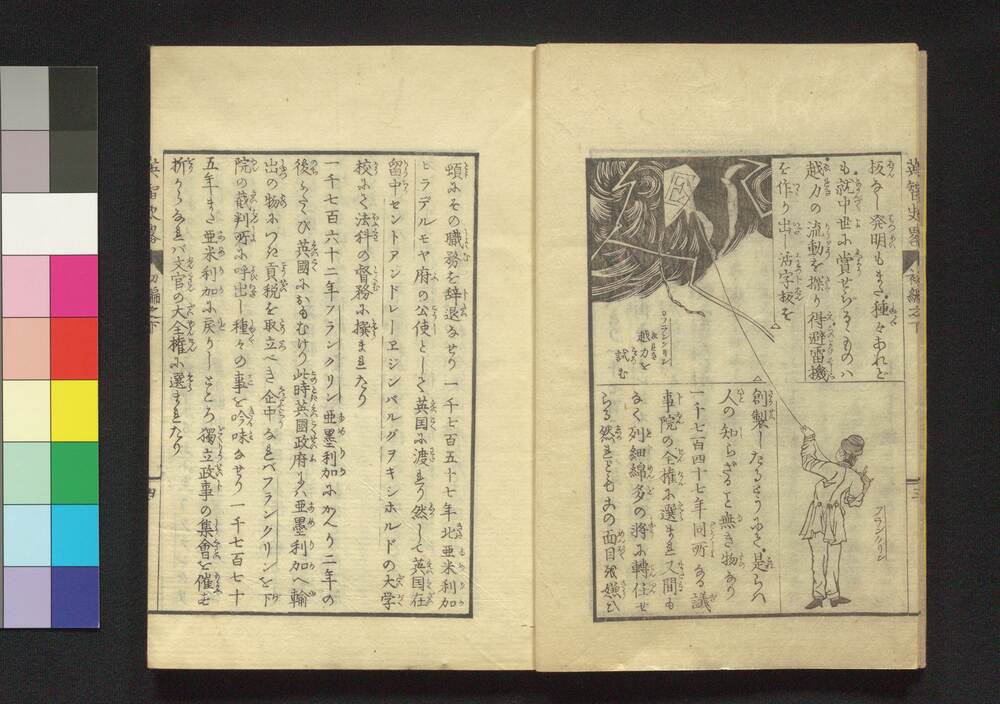 英智史畧 初編之下 三
抜なし発明もまた種々あれど
も就中世に賞せらるゝものハ
越力の流動を探り得避雷機
を作り出し活字抜を
フランクリン
越力を
試む
フランクリン
創製したるなり是らハ
人の知らざること無き物なり
一千七百四十七年同所なる議
事院の全権に選まれ又間も
なく列細綿多の将に轉任せ
らる然れどもあの面目を嫌ひ
頓にその職務を辞退なせり一千七百五十七年北亜米利加
ヒラデルモヤ府の公使として英国に渡れり然して英国在
留中セントアンドレーヱジンバルグヲキシホルドの大学
校にて法科の督務に撰まれたり
一千七百六十二年フランクリン亜墨利加にかへり二年の
後ふたゝび英國におもむけり此時英國政府にハ亜墨利加へ輸
出の物につき貢税を取立べき企中なれバフランクリンを下
院の裁判所に呼出し種々の事を吟味なせり一千七百七十
五年また亜米利加に戻りしところ獨立政事の集會を催せ
折からなれバ文官の大全権に選まれたり
英智史畧 初編之下 四